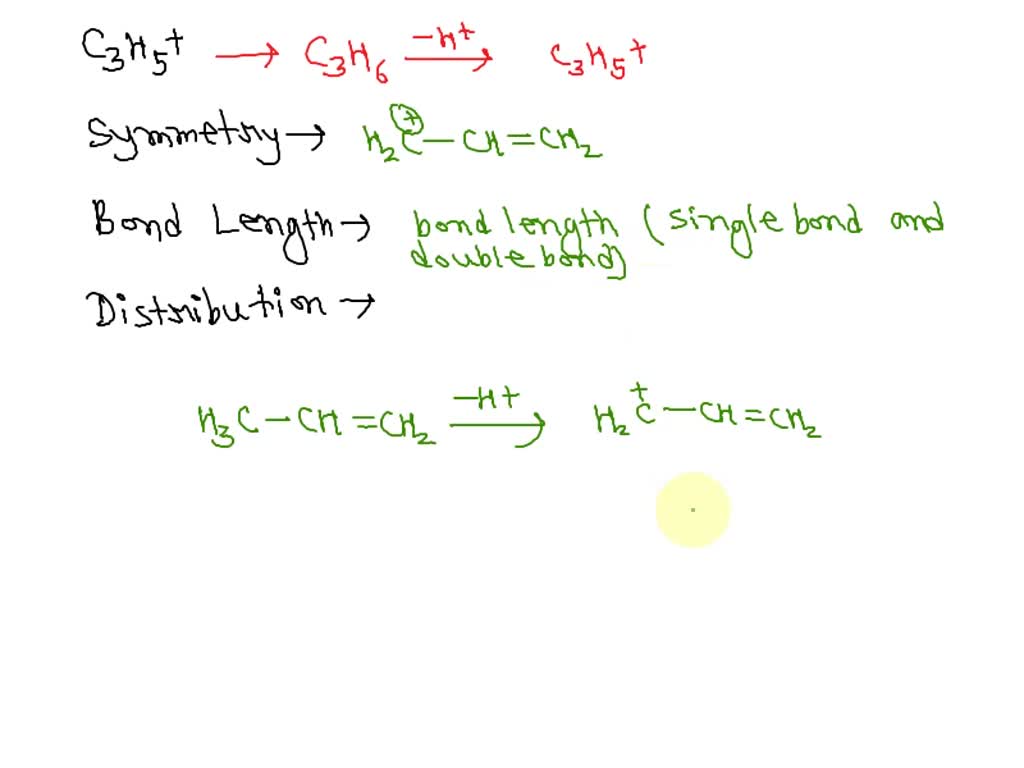 C3H5+ → C3H6 -H+→ C3H5+
Symmetry → H2C+ - CH = CH2
Bond Length → bond length (single bond and
double bond)
Distribution →
H3C - CH = CH2 -H+→ H2C+ - CH = CH2